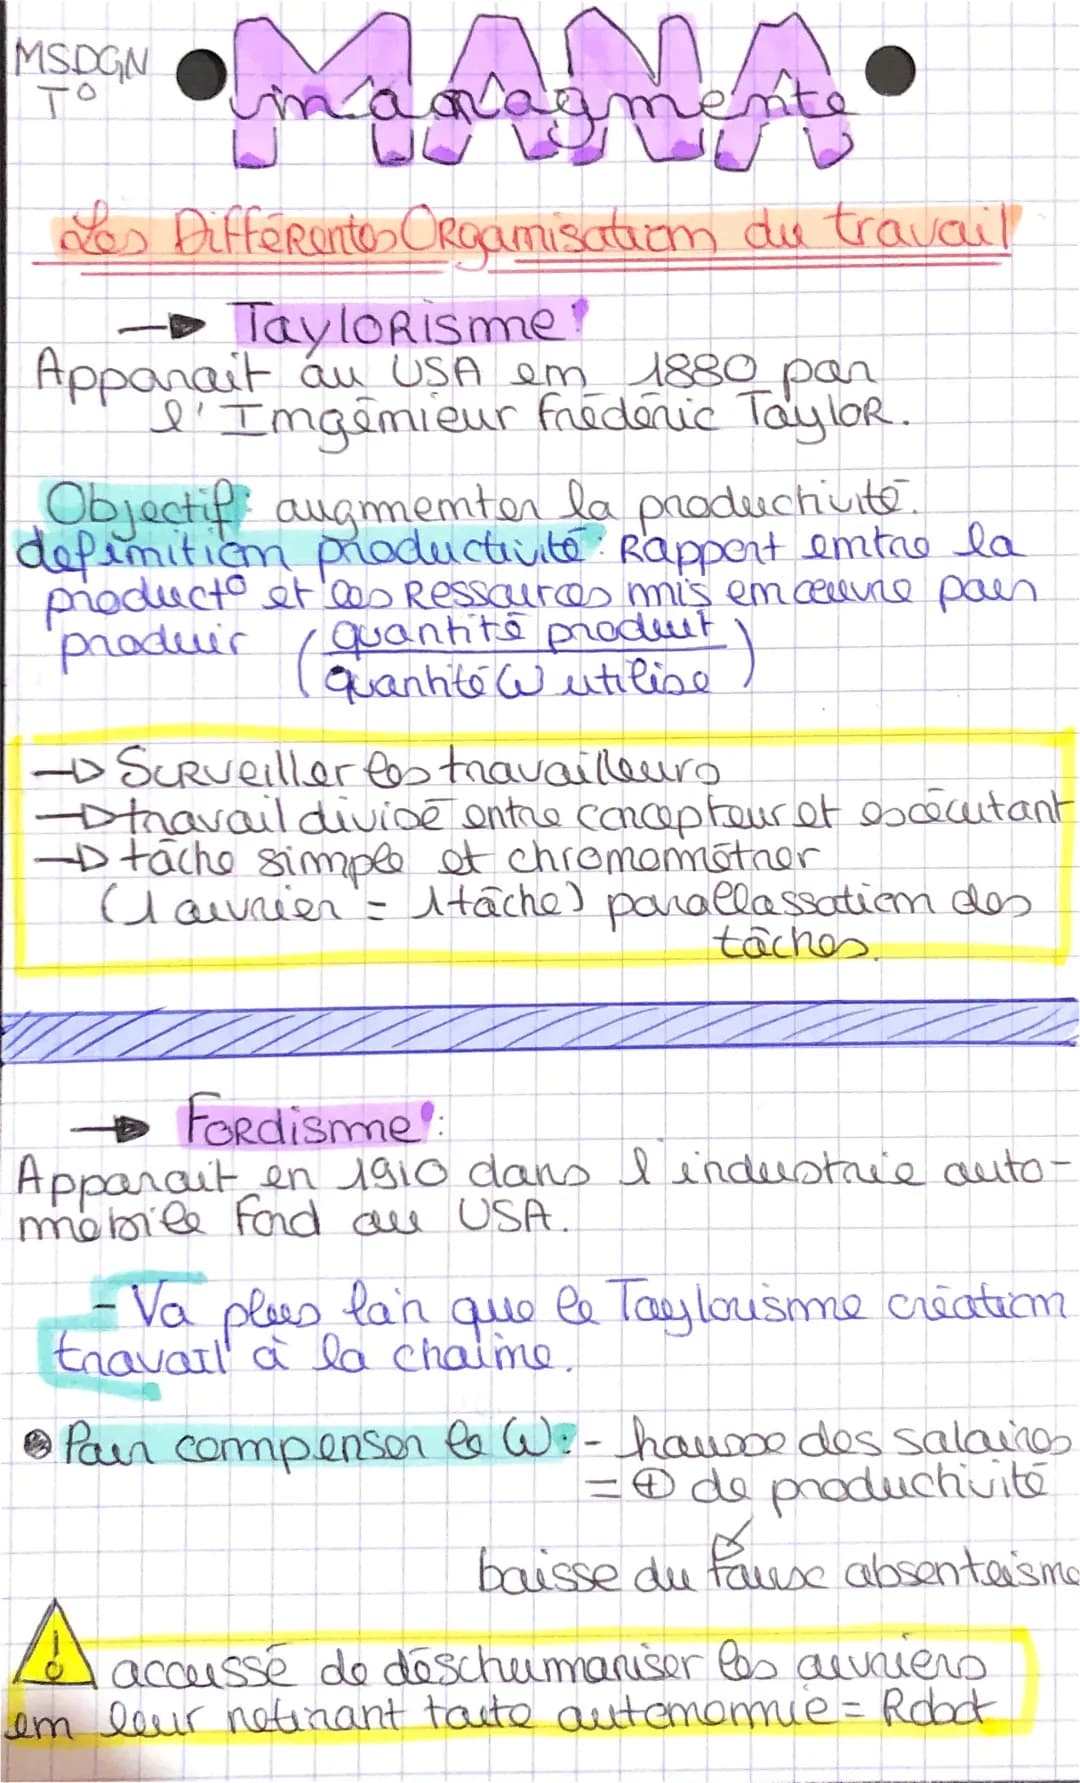 MSDGN
T°
MANA
managmente
Les Différentes Organisation du travail
→ Taylorisme :
Apparait au USA en 1880 par
l'Ingénieur Frédéric Taylor.
Objectif : augmenter la productivité.
definition productivité : Rapport entre la
product° et les Ressources mis en œuvre pour
produir (quantité produit
quantité W utilise)
→ Surveiller les travailleurs
→ travail divisé entre concepteur et exécutant
→ tâche simple et chronométrer
(1 ouvrier = 1 tâche) parallassation des
tâches.
→ Fordisme :
Apparait en 1910 dans l'industrie auto-
mobile Ford au USA.
- Va plus loin que le Taylorisme création
travail à la chaine.
• Pour compenser le W : - hausse des salaires
= ⊕ de productivité
baisse du faux absenteisme
! accussé de déschumaniser les ouvriers
en leur retirant toute automomie = Robot